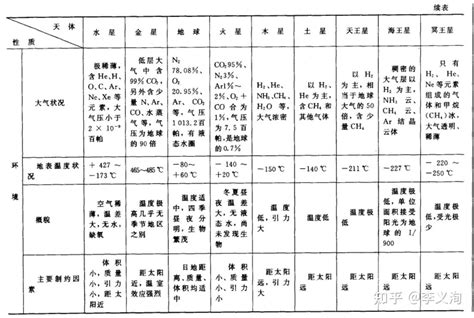 续表
天体
性质
水星
金星
地球
火星
木星
土星
天王星
海王星
冥王星
环境
大气状况
极稀薄,
含He、H、
O、C、Ar、
Ne、Xe等
元素,大
气压小于
2×10⁻⁹
百帕
低层大
气中含
99%CO₂,
另外含少
量N、Ar、
CO、水蒸
气等,气
压为地球
的90倍
N₂
78.08%、
O₂
20.95%、
Ar、CO₂
等,气压
1013.2百
帕,有液
态水圈
CO₂95%、
N₂3%、
Ar1%~
2%、O₂+
CO合为
1%,气压
为7.5百
帕,是地球
的0.7%
H₂、He、
NH₃、CH₄、
H₂O等,
大气浓密
以H₂
为主,
含CH₄和
其他气体
以H₂
为主,相
当于地球
大气的50
倍,含少
量CH₄
稠密的
大气层以
H₂为主,
NH₃云、
CH₄云、
Ar结晶
云体
只有
H₂、He、
Ne等元素
组成的气
体和甲烷
(CH₄)冰
地表温度状
况
+427~
-173℃
465~485℃
-80~
+60℃
-140~
+20℃
-150℃
-140℃
-211℃
-227℃
-220~
-250℃
概貌
空气稀
薄,温差
大,无水,
缺氧
温度极
高几乎无
季节地区
之别
温度适
中,四季
昼夜分
明,生物
繁茂
冬夏昼
夜温差
大,无液
态水,尚
未发现生
物
温度
低,引力
大
温度低
温度极
低
温度极
低,单位
面积接受
阳光为地
球的1/
900
温度极
低,受光极
少
主要制约因
素
体积
小,质量
小,引力
小,距太
阳近
距太阳
近,温室
效应强烈
日地距
离、质量、
体积均适
中
体积
小、质量
小,引力
小
距太阳
远,引力
大
距太阳
远
距太阳
远
距太阳
远
距太阳
远
知乎 @李义洵